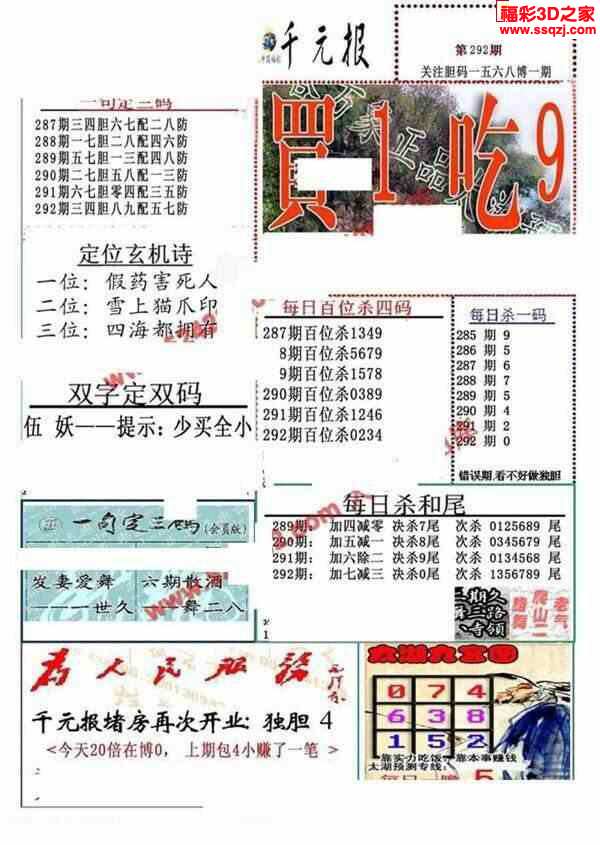 福彩3D之家
www.ssqzj.com
千元报
第292期
关注胆码一五六八博一期
買1吃9
一句定三码
287期三四胆六七配二八防
288期一七胆二八配四六防
289期五七胆一三配四八防
290期二七胆五八配一三防
291期六七胆零四配三五防
292期三四胆八九配五七防
定位玄机诗
一位：假药害死人
二位：雪上猫爪印
三位：四海都拥有
每日百位杀四码
287期百位杀1349
8期百位杀5679
9期百位杀1578
290期百位杀0389
291期百位杀1246
292期百位杀0234
每日杀一码
285 期 9
286 期 5
287 期 6
288 期 7
289 期 5
290 期 4
291 期 2
292 期 0
错误期,看不好做独胆
双字定双码
伍 妖——提示：少买全小
一句定三码(会员版)
发妻爱舞 六期散酒
——一世久 —舞二八
每日杀和尾
289期： 加四减零 决杀7尾 次杀 0125689 尾
290期： 加五减一 决杀8尾 次杀 0345679 尾
291期： 加六除二 决杀9尾 次杀 0134568 尾
292期： 加七减三 决杀0尾 次杀 1356789 尾
为人民服务
千元报堵房再次开业：独胆 4
<今天20倍在博0， 上期包4小赚了一笔>
太湖九宫图
0 7 4
6 3 8
1 5 2
靠实力吃饭,靠本事赚钱
太湖预测专线：
5